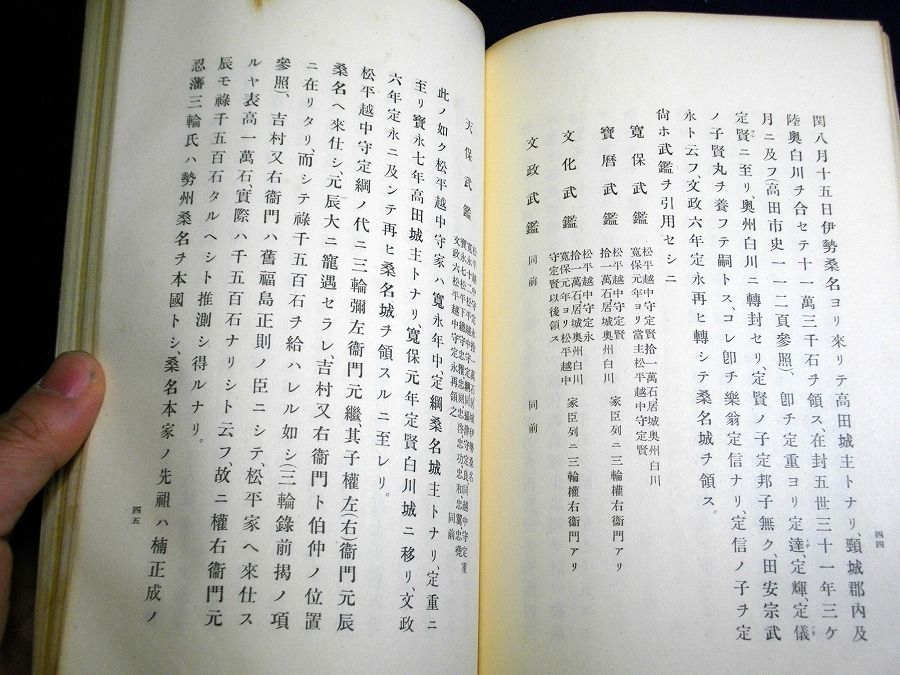 閏八月十五日伊勢桑名ヨリ來リテ高田城主トナリ、頸城郡內及
陸奥白川ヲ合セテ十一萬三千石ヲ領ス、在封五世三十一年三ケ
月ニ及フ(高田市史一一二頁參照)、卽チ定重ヨリ定逵、定輝、定儀
定賢ニ至リ、奥州白川ニ轉封セリ、定賢ノ子定邦子無ク、田安宗武
ノ子賢丸ヲ養フテ嗣トス、コレ卽チ樂翁定信ナリ、定信ノ子ヲ定
永ト云フ、文政六年定永再ヒ轉シテ桑名城ヲ領ス。
尙ホ武鑑ヲ引用セシニ
寬保武鑑 松平越中守定賢拾一萬石、居城奥州白川
寬保元年ヨリ當主松平越中守定賢
寶曆武鑑 松平越中守定賢
拾一萬石、居城奥州白川 家臣列ニ三輪權右衞門アリ
文化武鑑 松平越中守定永
拾一萬石居城奥州白川
寬保元年ヨリ松平越中
守定賢以後領ス 家臣列ニ三輪權右衞門アリ
文政武鑑 同前 同前
四四
天保武鑑
文政六松平越中守定永再領之 同前
此ノ如ク松平越中守家ハ寬永年中、定綱桑名城主トナリ、定重ニ
至リ寶永七年高田城主トナリ、寬保元年定賢白川城ニ移リ、文政
六年定永ニ及シテ再ヒ桑名城ヲ領スルニ至レリ。
松平越中守定綱ノ代ニ三輪彌左衞門元繼、其子權左(右)衞門元辰
桑名ヘ來仕シ、元辰大ニ寵遇セラレ、吉村又右衞門ト伯仲ノ位置
ニ在リタリ、而シテ祿千五百石ヲ給ハレルカ如シ(三輪錄前揭ノ項
參照)、吉村又右衞門ハ舊福島正則ノ臣ニシテ、松平家ヘ來仕ス
ルヤ表高一萬石、實際ハ千五百石ナリシト云フ、故ニ權右衞門元
辰モ祿千五百石タルヘシト推測シ得ルナリ。
忍藩三輪氏ハ勢州桑名ヲ本國トシ、桑名本家ノ先祖ハ楠正成ノ
四五